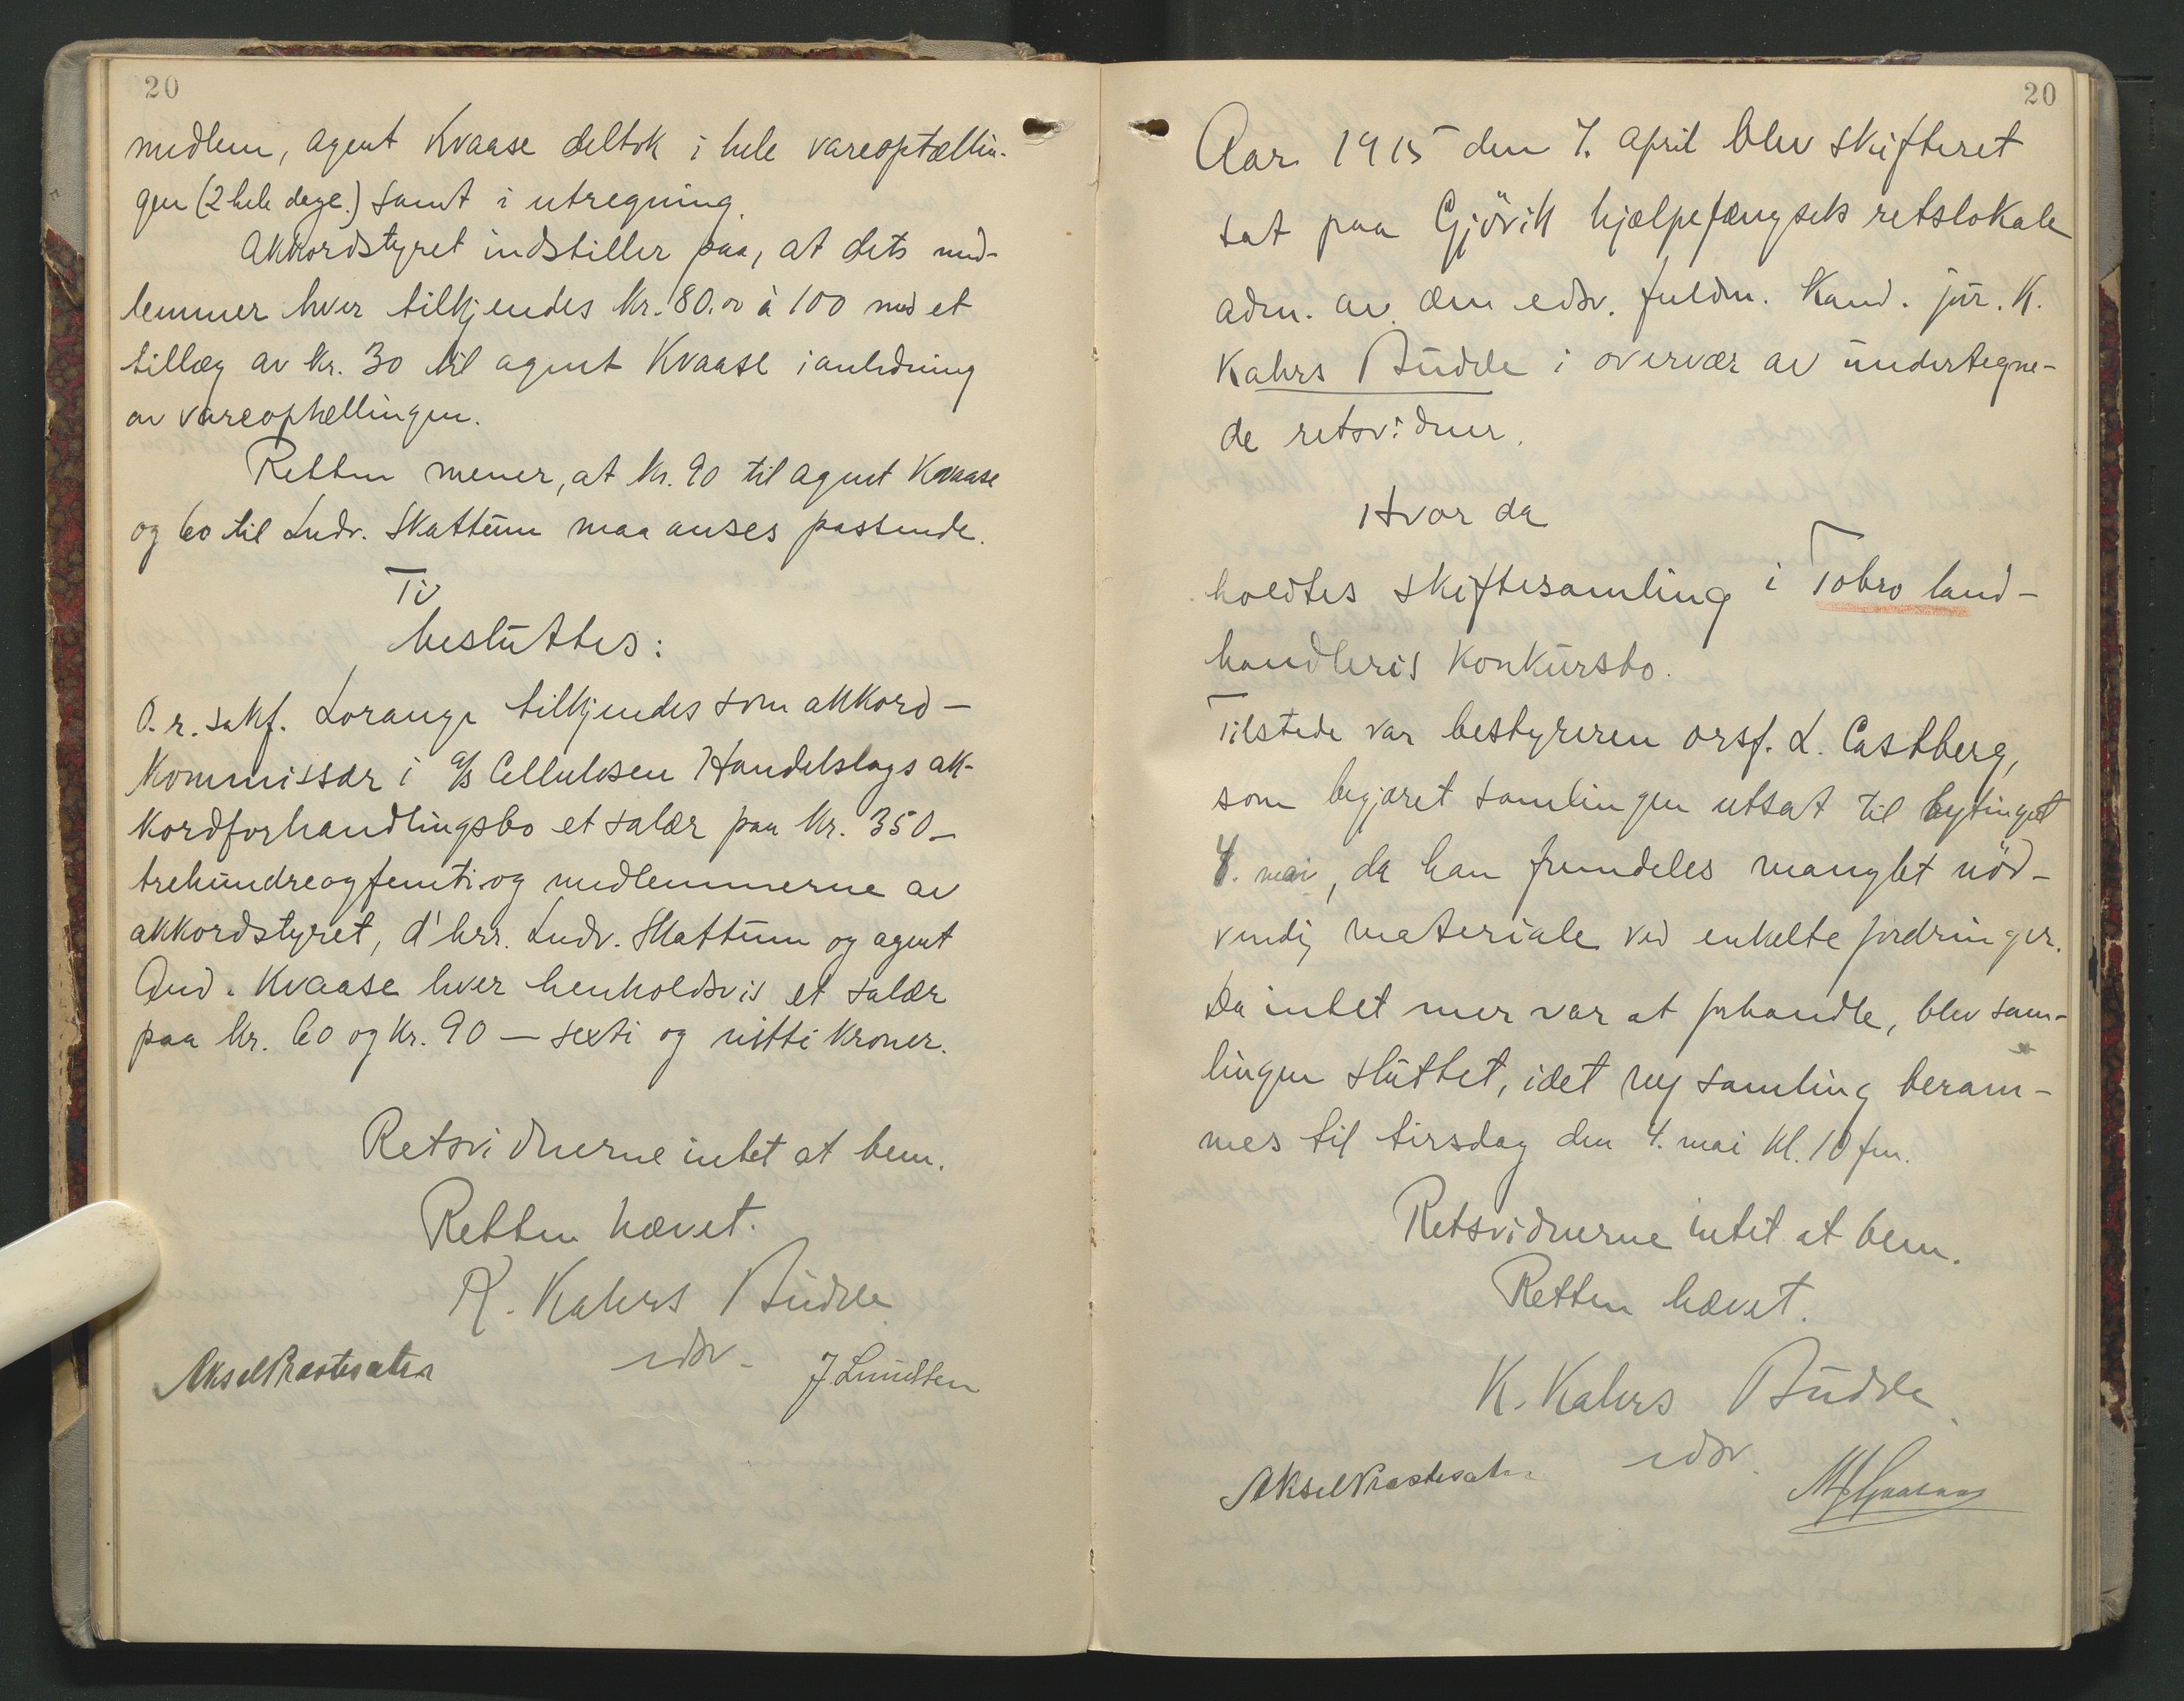 20
medlem, agent Kvaase deltok i hele vareoptællin-
gen (2 hele dage.) samt i utregning.
Akkordstyret indstiller paa, at dets med-
lemmer hver tilkjendes kr. 80.00 à 100 med et
tillæg av kr. 30 til agent Kvaase i anledning
av vareoptællingen.
Retten mener, at kr. 90 til agent Kvaase
og 60 til Ludv. Skattum maa anses passende.
Ti
besluttes:
O.r.sakf. Lorange tilkjendes som akkord-
kommissær i a/s Cellulosen Handelslags ak-
kordforhandlingsbo et salær paa kr. 350 -
trehundreogfemti - og medlemmerne av
akkordstyret, d'hrr. Ludv. Skattum og agent
And. Kvaase hver henholdsvis et salær
paa kr. 60 og kr. 90 — sexti og nitti kroner.
Retsvidnerne intet at bem.
Retten hævet.
K. Kahrs Budde
edsv.
Aksel Præstesæter J. Lundsten
20
Aar 1915 den 7. april blev skifteret
sat paa Gjövik hjælpefængsels retslokale
adm. av den edsv. fuldm. Kand. jur. K.
Kahrs Budde i overvær av undertegne-
de retsvidner.
Hvor da
holdtes skiftesamling i Tobro land-
handleris konkursbo.
Tilstede var bestyreren orsf. L. Castberg,
som begjæret samlingen utsat til bytinget
4. mai, da han fremdeles manglet nöd-
vendig materiale ved enkelte fordringer.
Da intet mer var at forhandle, blev sam-
lingen sluttet, idet ny samling beram-
mes til tirsdag den 4. mai kl. 10 fm.
Retsvidnerne intet at bem.
Retten hævet.
K. Kahrs Budde
edsv.
Aksel Præstesæter